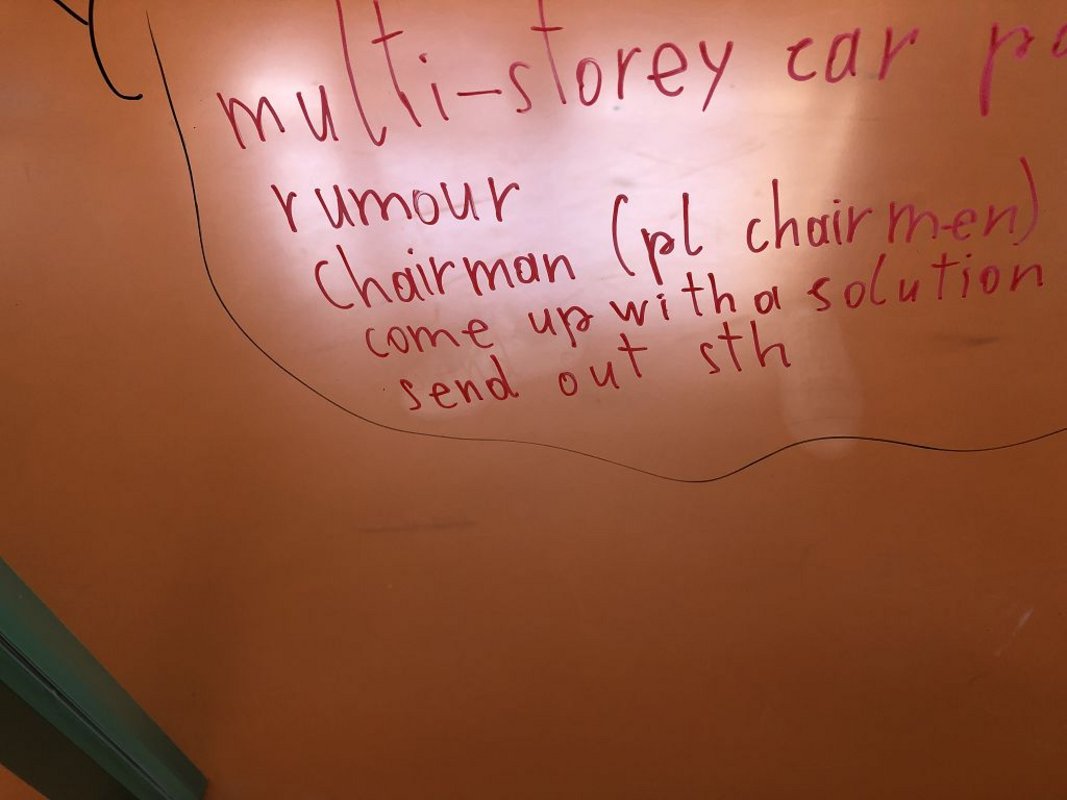 multi-storey car
rumour
chairman (pl chairmen)
come up with a solution
send out sth